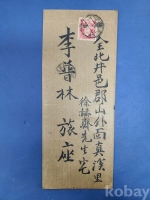 全北井邑郡山外面貞溪里
先生宅
李普林 旅座
kobay